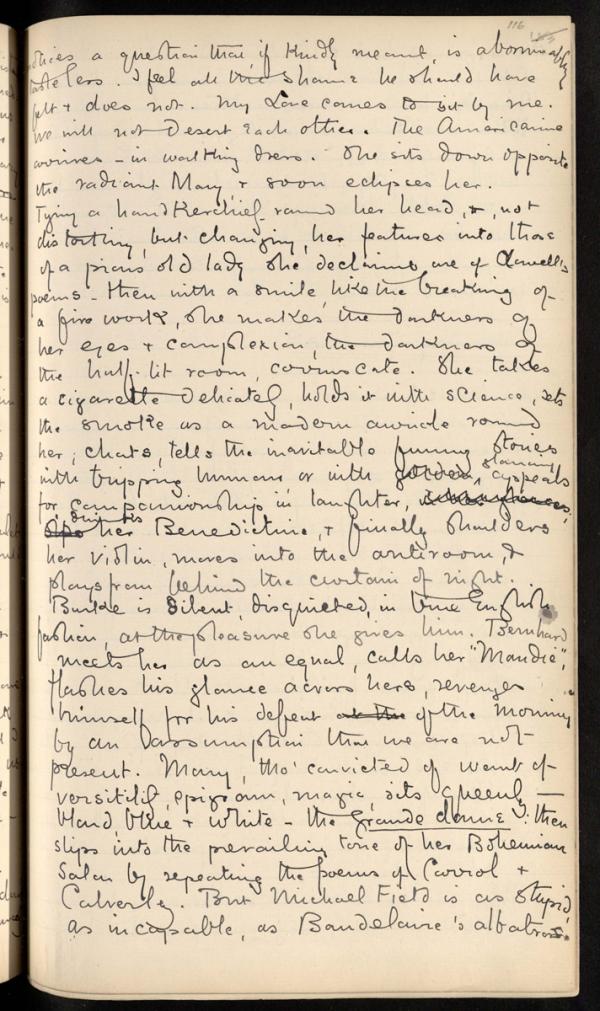 116
a question that, if kindly meant, is abominably
tasteless. I feel all the shame he should have
felt & does not. My Love comes to sit by me.
We will not desert each other. The Americaine
arrives – in walking dress. She sits down opposite
the radiant Mary & soon eclipses her.
Tying a handkerchief round her head, &, not
distorting, but changing, her features into those
of a pious old lady she declaims one of Lowell's
poems – then with a smile, like the breaking of
a fire work, she makes the darkness of
her eyes & complexion, the darkness of
the half-lit room, coruscate. She takes
a cigarette delicately, holds it with science, sets
the smoke as a modern aureole round
her, chats, tells the inevitable funny stories
with tripping humour or with glamour, appeals
for companionship in laughter,
drinks her Benedictine, & finally shoulders
her violin, moves into the anteroom, &
plays from behind the curtain of night.
Burke is silent, disquieted, in true English
fashion, at the pleasure she gives him. Bernhard
meets her as an equal, calls her "Maudie",
flashes his glance across hers, revenges
himself for his defeat of the morning
by an assumption that we are not
present. Mary, tho' convicted of want of
versatility, epigram, magic, sits queenly –
bland, blue & white – the grande dame: then
slips into the prevailing tone of her Bohemian
Salon by repeating the poems of Carrol &
Calverley. But Michael Field is as stupid,
as incapable, as Baudelaire's albatross.